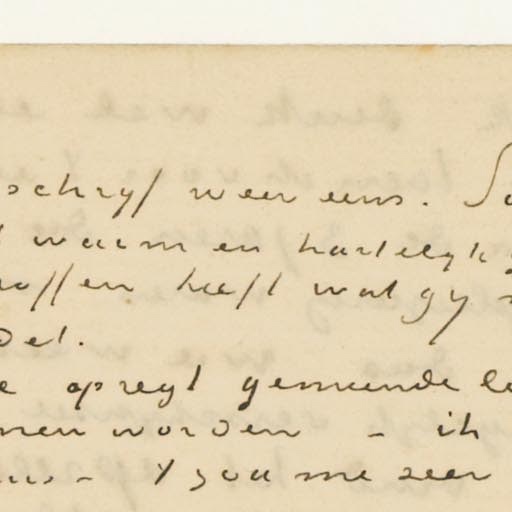 schryf weer eens.
warm en hartelyk
heeft wat gy
det.
opregt gemeende
worden – ik
zou me zeer